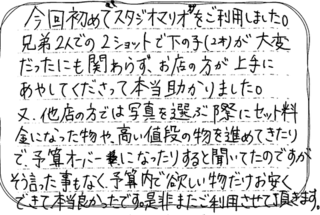 今回初めて"スタジオマリオ"をご利用しました。
兄弟2人での2ショットで下の子(2才)が大変
だったにも関わらず、お店の方が上手に
あやしてくださって本当助かりました。
又、他店の方では写真を選ぶ際にセット料
金になった物や、高い値段の物を進めてきたり
で、予算オーバーになったりすると聞いてたのですが
そう言った事もなく、予算内で欲しい物だけお安く
できて本当良かったです。是非またご利用させて頂きます。